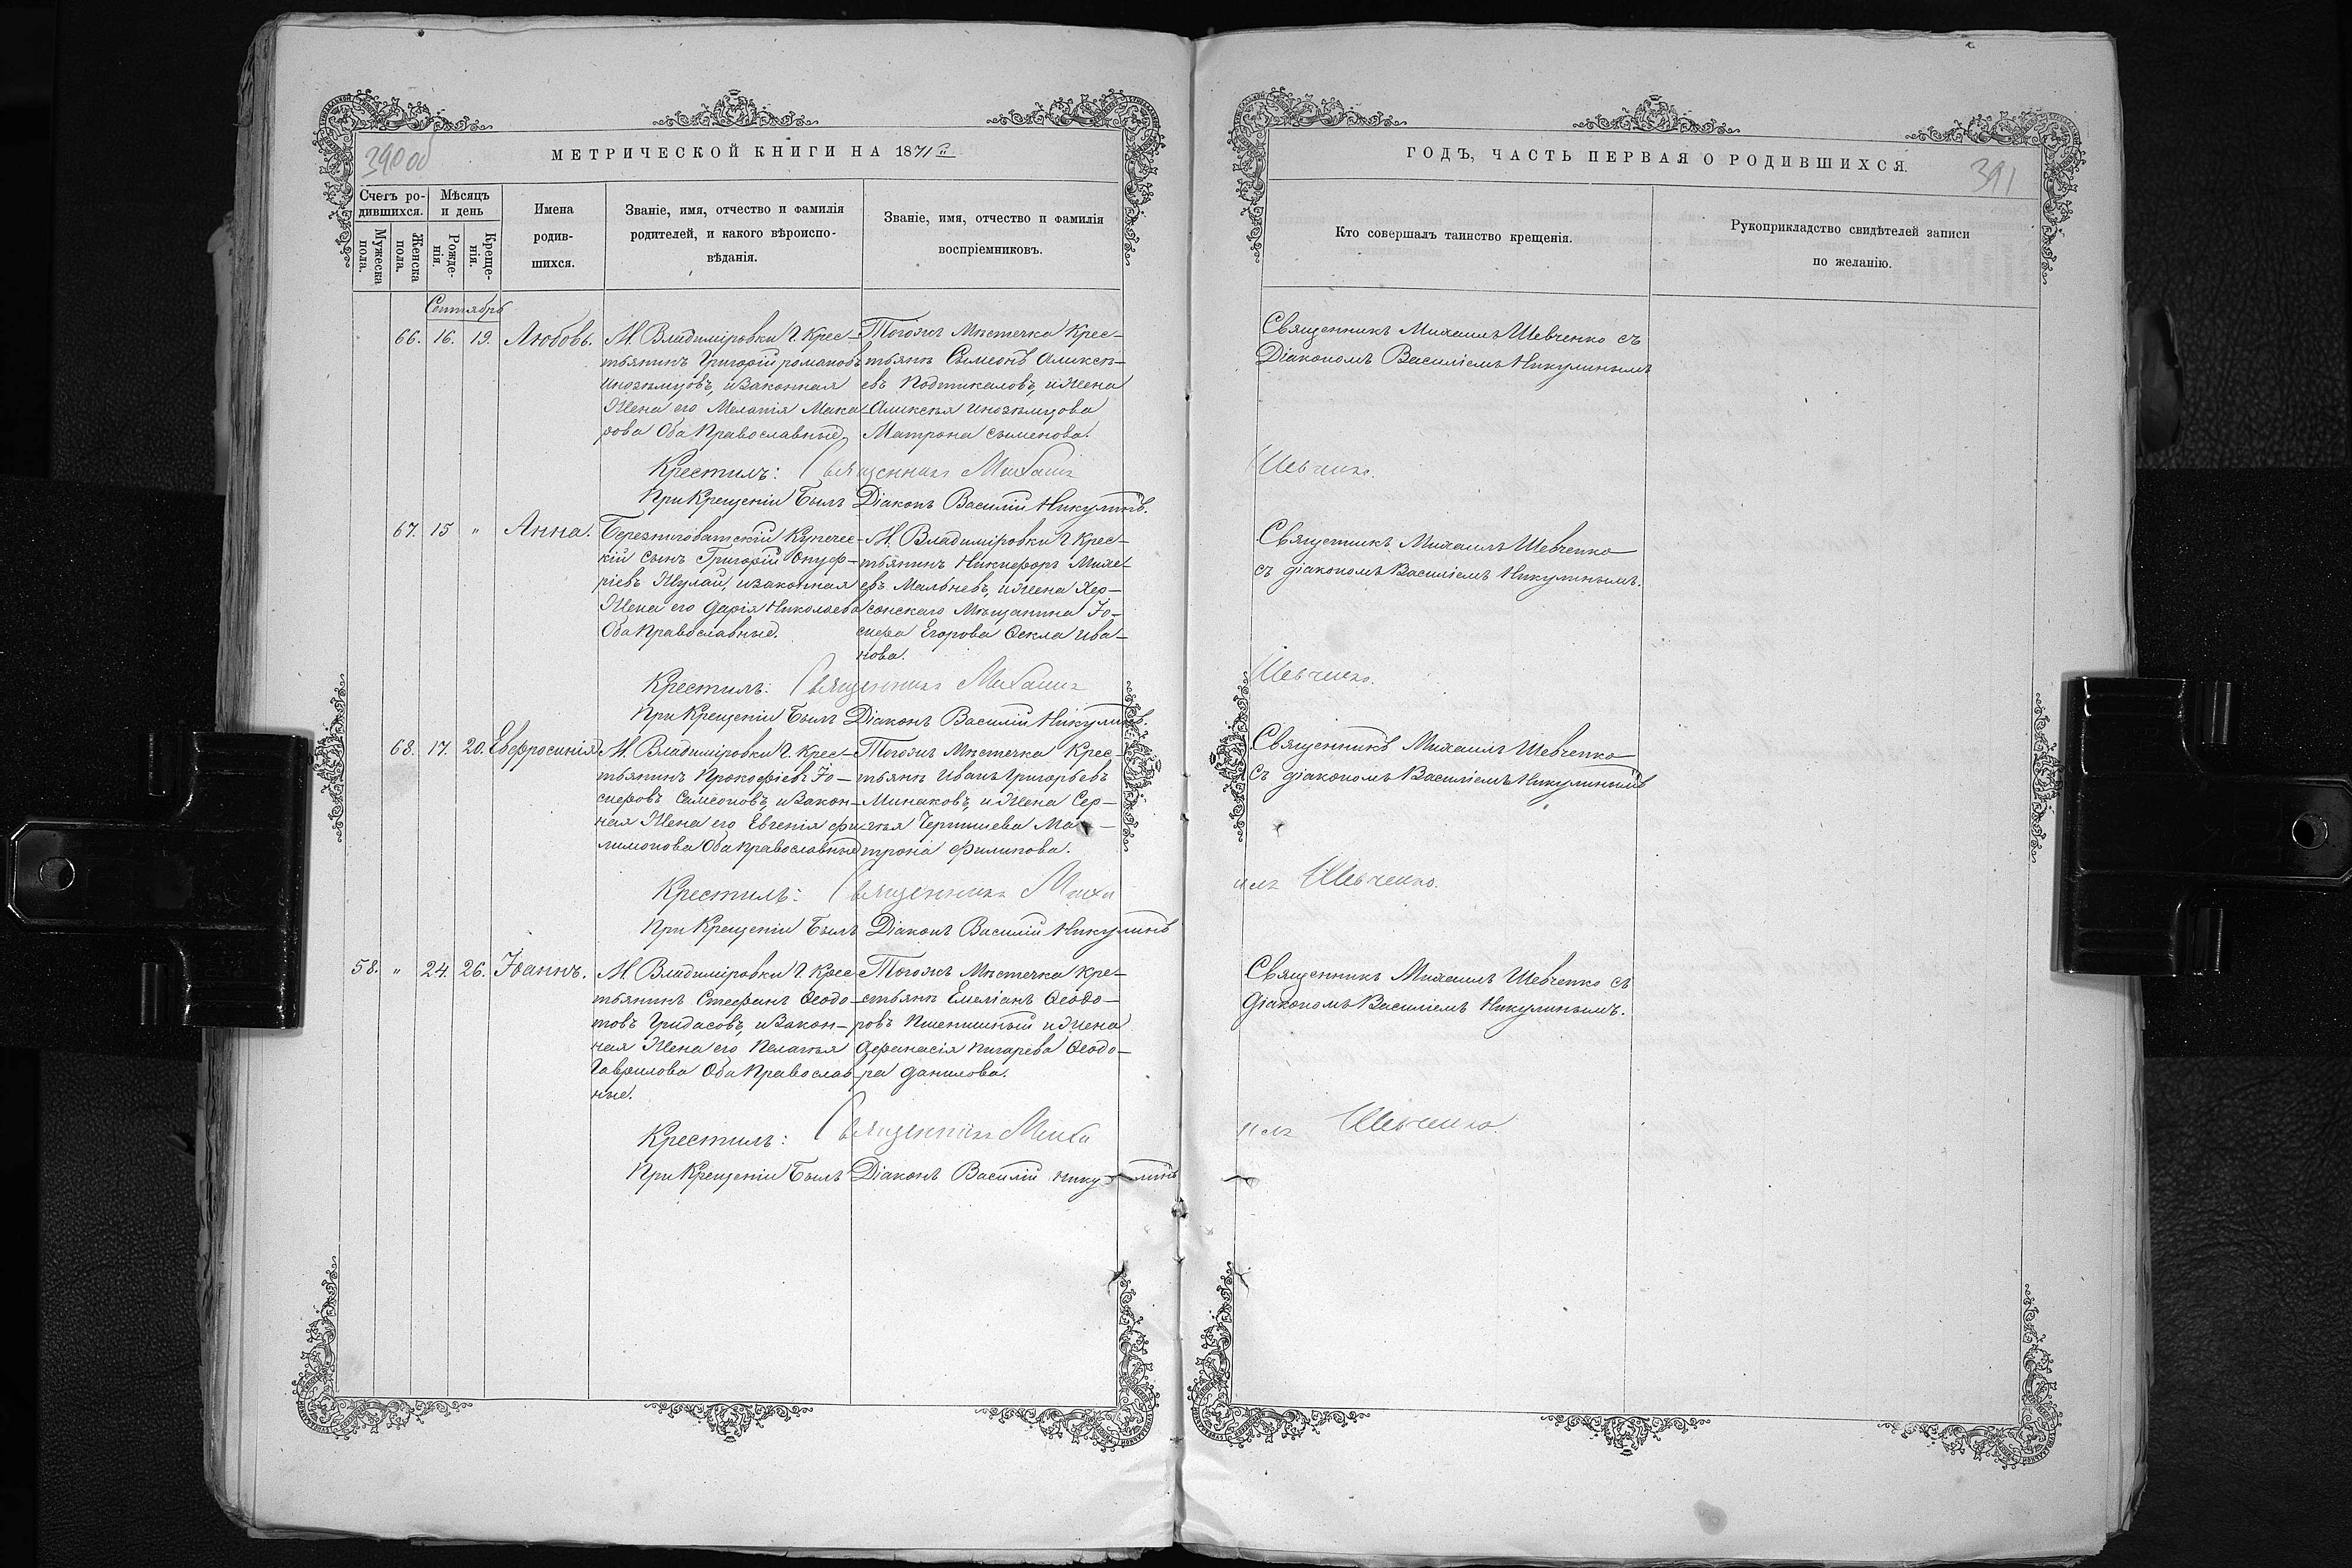 390об
МЕТРИЧЕСКОЙ КНИГИ НА 1871й
Счетъ ро-
дившихся.
Мужеска
пола.
Женска
пола.
Мѣсяцъ
и день
Рожде-
нія.
Креще-
нія.
Имена
родив-
шихся.
Званіе, имя, отчество и фамилія
родителей, и какого вѣроиспо-
вѣданія.
Званіе, имя, отчество и фамилія
воспріемниковъ.
Сентябрь
66. 16. 19. Любовь.
М. Владиміровки Г. Крес-
тьянинъ Григорій романовъ
иноземцовъ, и законная
Жена его Меланія Мака
рова Оба Православные,
Тогожъ Мѣстечка Крес-
тьянъ Сѵмеонъ Аликсѣ-
евъ Подтикаловъ, и Жена
Аликсѣя иноземцова
Матрона сѵменова.
Крестилъ: Священникъ Михаилъ
При Крещеніи Былъ Діаконъ Василій Никулинъ.
67. 15 " Анна.
Березниговатскій Купечес-
кій сынъ Григорій Онуф-
ріевъ Жулай, и законная
Жена его Дарія Николаева
Оба Православные.
М. Владиміровки Г Крес-
тьянинъ Никифоръ Михе
евъ Мальневъ, и Жена Хер-
сонскаго Мѣщанина Іо-
сифа Егорова Ѳекла ива-
нова.
Крестилъ: Священникъ Михаилъ
При Крещеніи Былъ Діаконъ Василій Никулинъ.
68. 17. 20. Евфросинія
М. Владиміровки Г. Крес-
тьянинъ Прокофіевъ Іо-
сифовъ Самсоновъ, и Закон-
ная Жена его Евгенія фи-
лимонова Оба православные
Тогожъ Мѣстечка Крес-
тьянъ Иванъ Григорьевъ
Минаковъ, и Жена Сер-
гѣя Чернышева Ма-
трона Филипова.
Крестилъ: Священникъ Миха
При Крещеніи Былъ Діаконъ Василій Никулинъ
58. " 24. 26. Іоаннъ.
М. Владиміровки Г Крес
тьянинъ Стефанъ Ѳеодо-
товъ Гридасовъ, и Закон-
ная Жена его Пелагѣя
Гаврилова Оба Православ
ные.
Тогожъ Мѣстечка Кре-
стьянъ Емеліанъ Ѳеодо-
ровъ Пшеничный и Жена
Афанасія Пигарева Ѳеодо-
ра данилова.
Крестилъ: Священникъ Миха
При Крещеніи Былъ Діаконъ Василій Никулинъ
ГОДЪ, ЧАСТЬ ПЕРВАЯ О РОДИВШИХСЯ.
391
Кто совершалъ таинство крещенія.
Рукоприкладство свидѣтелей записи
по желанію.
Священникъ Михаилъ Шевченко съ
Діакономъ Василіемъ Никулинымъ
Шевченко.
Священникъ Михаилъ Шевченко
съ діакономъ Василіемъ Никулинымъ.
Шевченко.
Священникъ Михаилъ Шевченко
съ діакономъ Василіемъ Никулинымъ
илъ Шевченко.
Священникъ Михаилъ Шевченко съ
Діакономъ Василіемъ Никулинымъ.
илъ Шевченко.